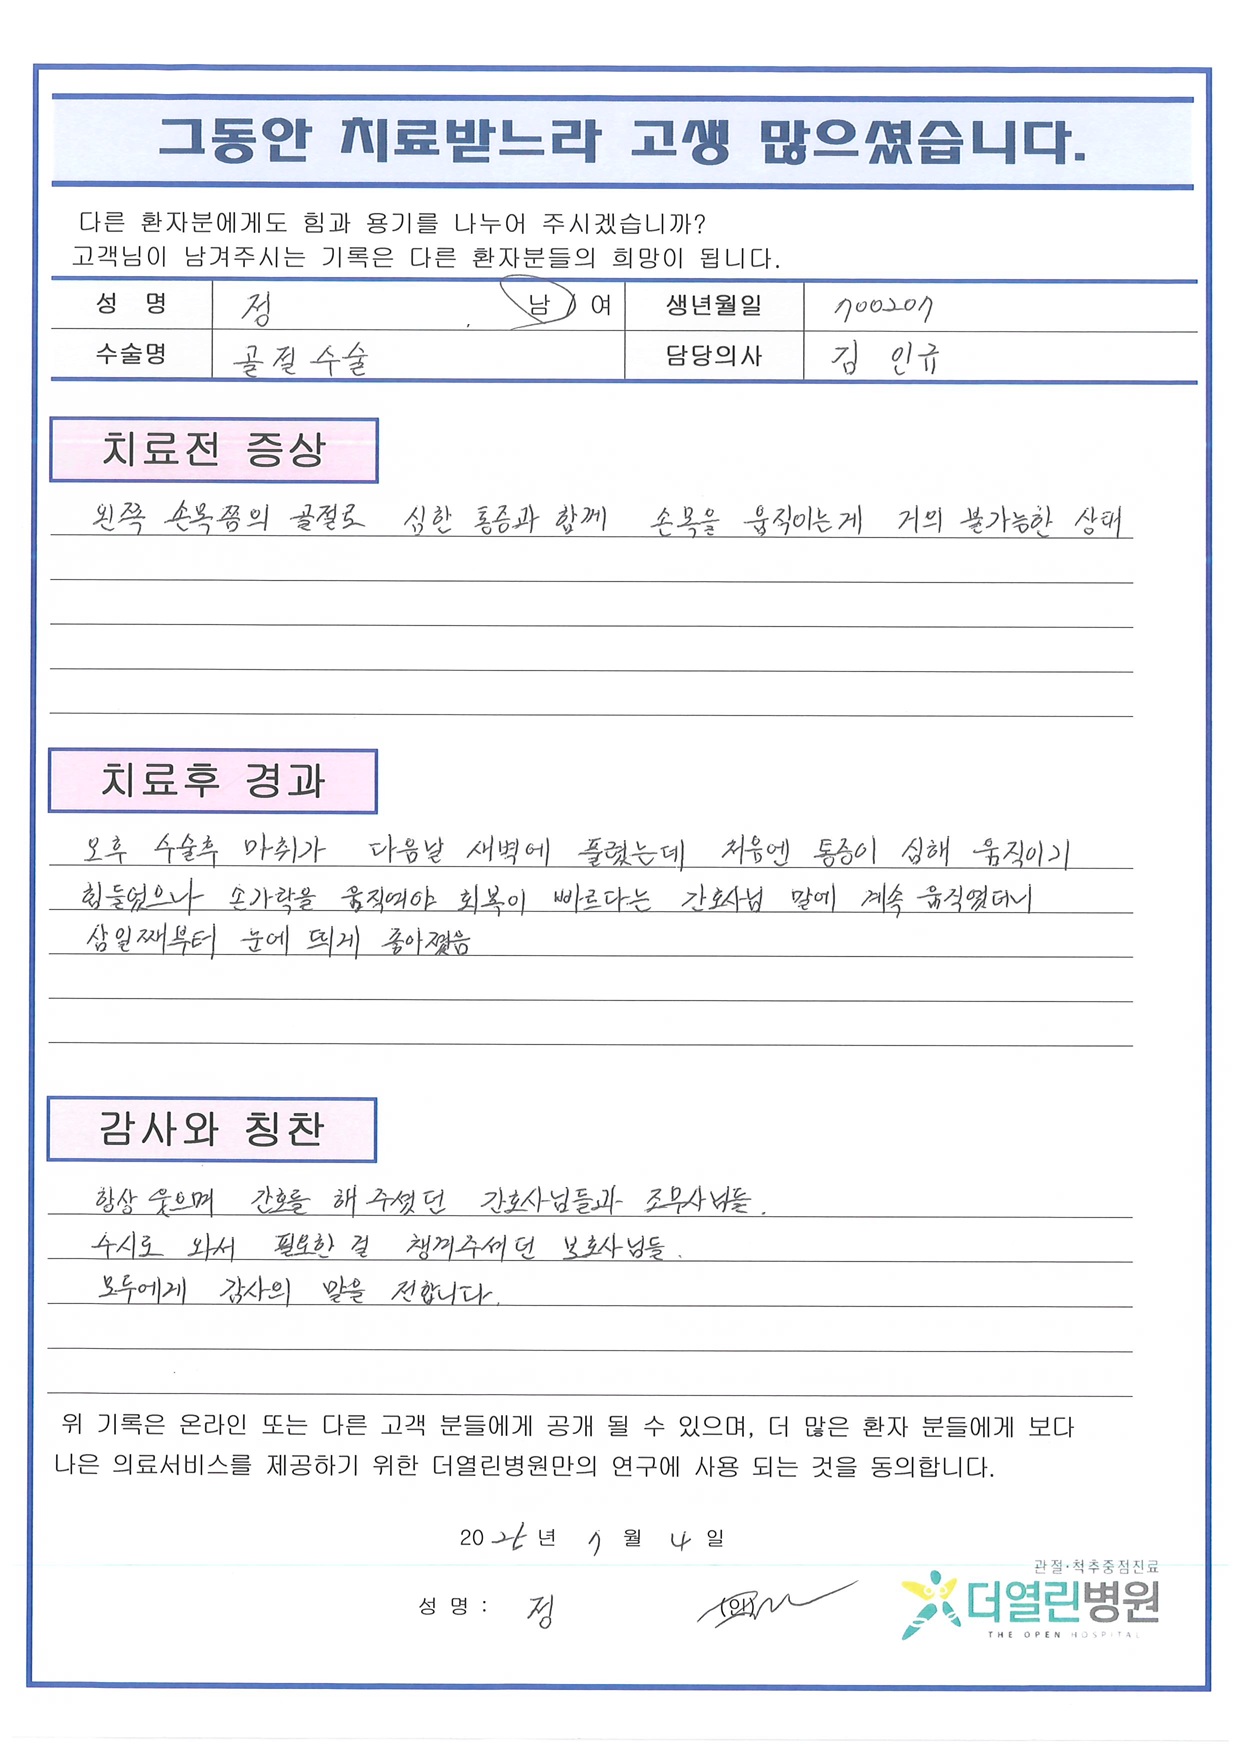 그동안 치료받느라 고생 많으셨습니다.
다른 환자분에게도 힘과 용기를 나누어 주시겠습니까?
고객님이 남겨주시는 기록은 다른 환자분들의 희망이 됩니다.
성 명 정 남 / 여 생년월일 700207
수술명 골절수술 담당의사 김 인규
치료전 증상
왼쪽 손목쯤의 골절로 심한 통증과 함께 손목을 움직이는게 거의 불가능한 상태
치료후 경과
오후 수술후 마취가 다음날 새벽에 풀렸는데 처음엔 통증이 심해 움직이기
힘들었으나 손가락을 움직여야 회복이 빠르다는 간호사님 말에 계속 움직였더니
삼일째부터 눈에 띄게 좋아졌음
감사와 칭찬
항상 웃으며 간호를 해 주셨던 간호사님들과 조무사님들.
수시로 와서 필요한 걸 챙겨주셨던 보호사님들.
모두에게 감사의 말을 전합니다.
위 기록은 온라인 또는 다른 고객 분들에게 공개 될 수 있으며, 더 많은 환자 분들에게 보다
나은 의료서비스를 제공하기 위한 더열린병원만의 연구에 사용 되는 것을 동의합니다.
20 년 7 월 4 일
성 명 : 정 (인)
관절·척추중점진료
더열린병원
THE OPEN HOSPITAL